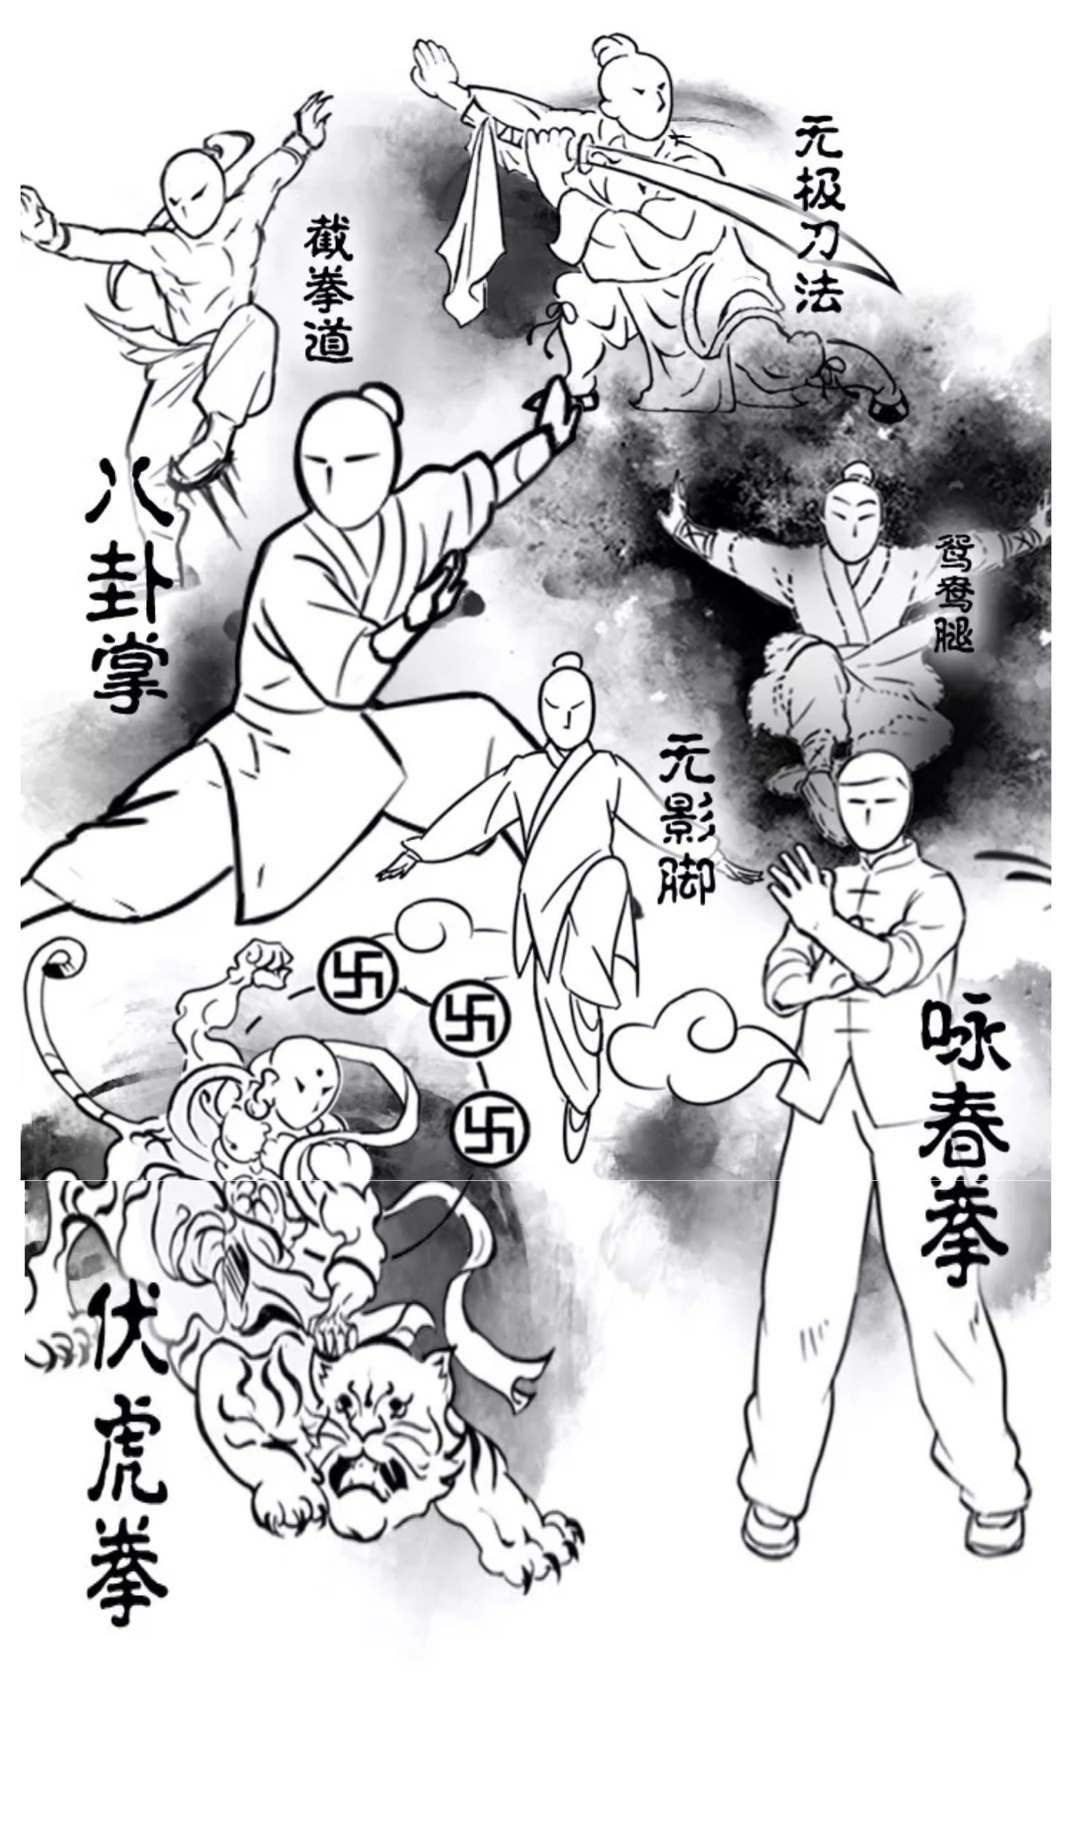 无极刀法
截拳道
八卦掌
鸳鸯腿
无影脚
卐
卐
卐
咏春拳
伏虎拳